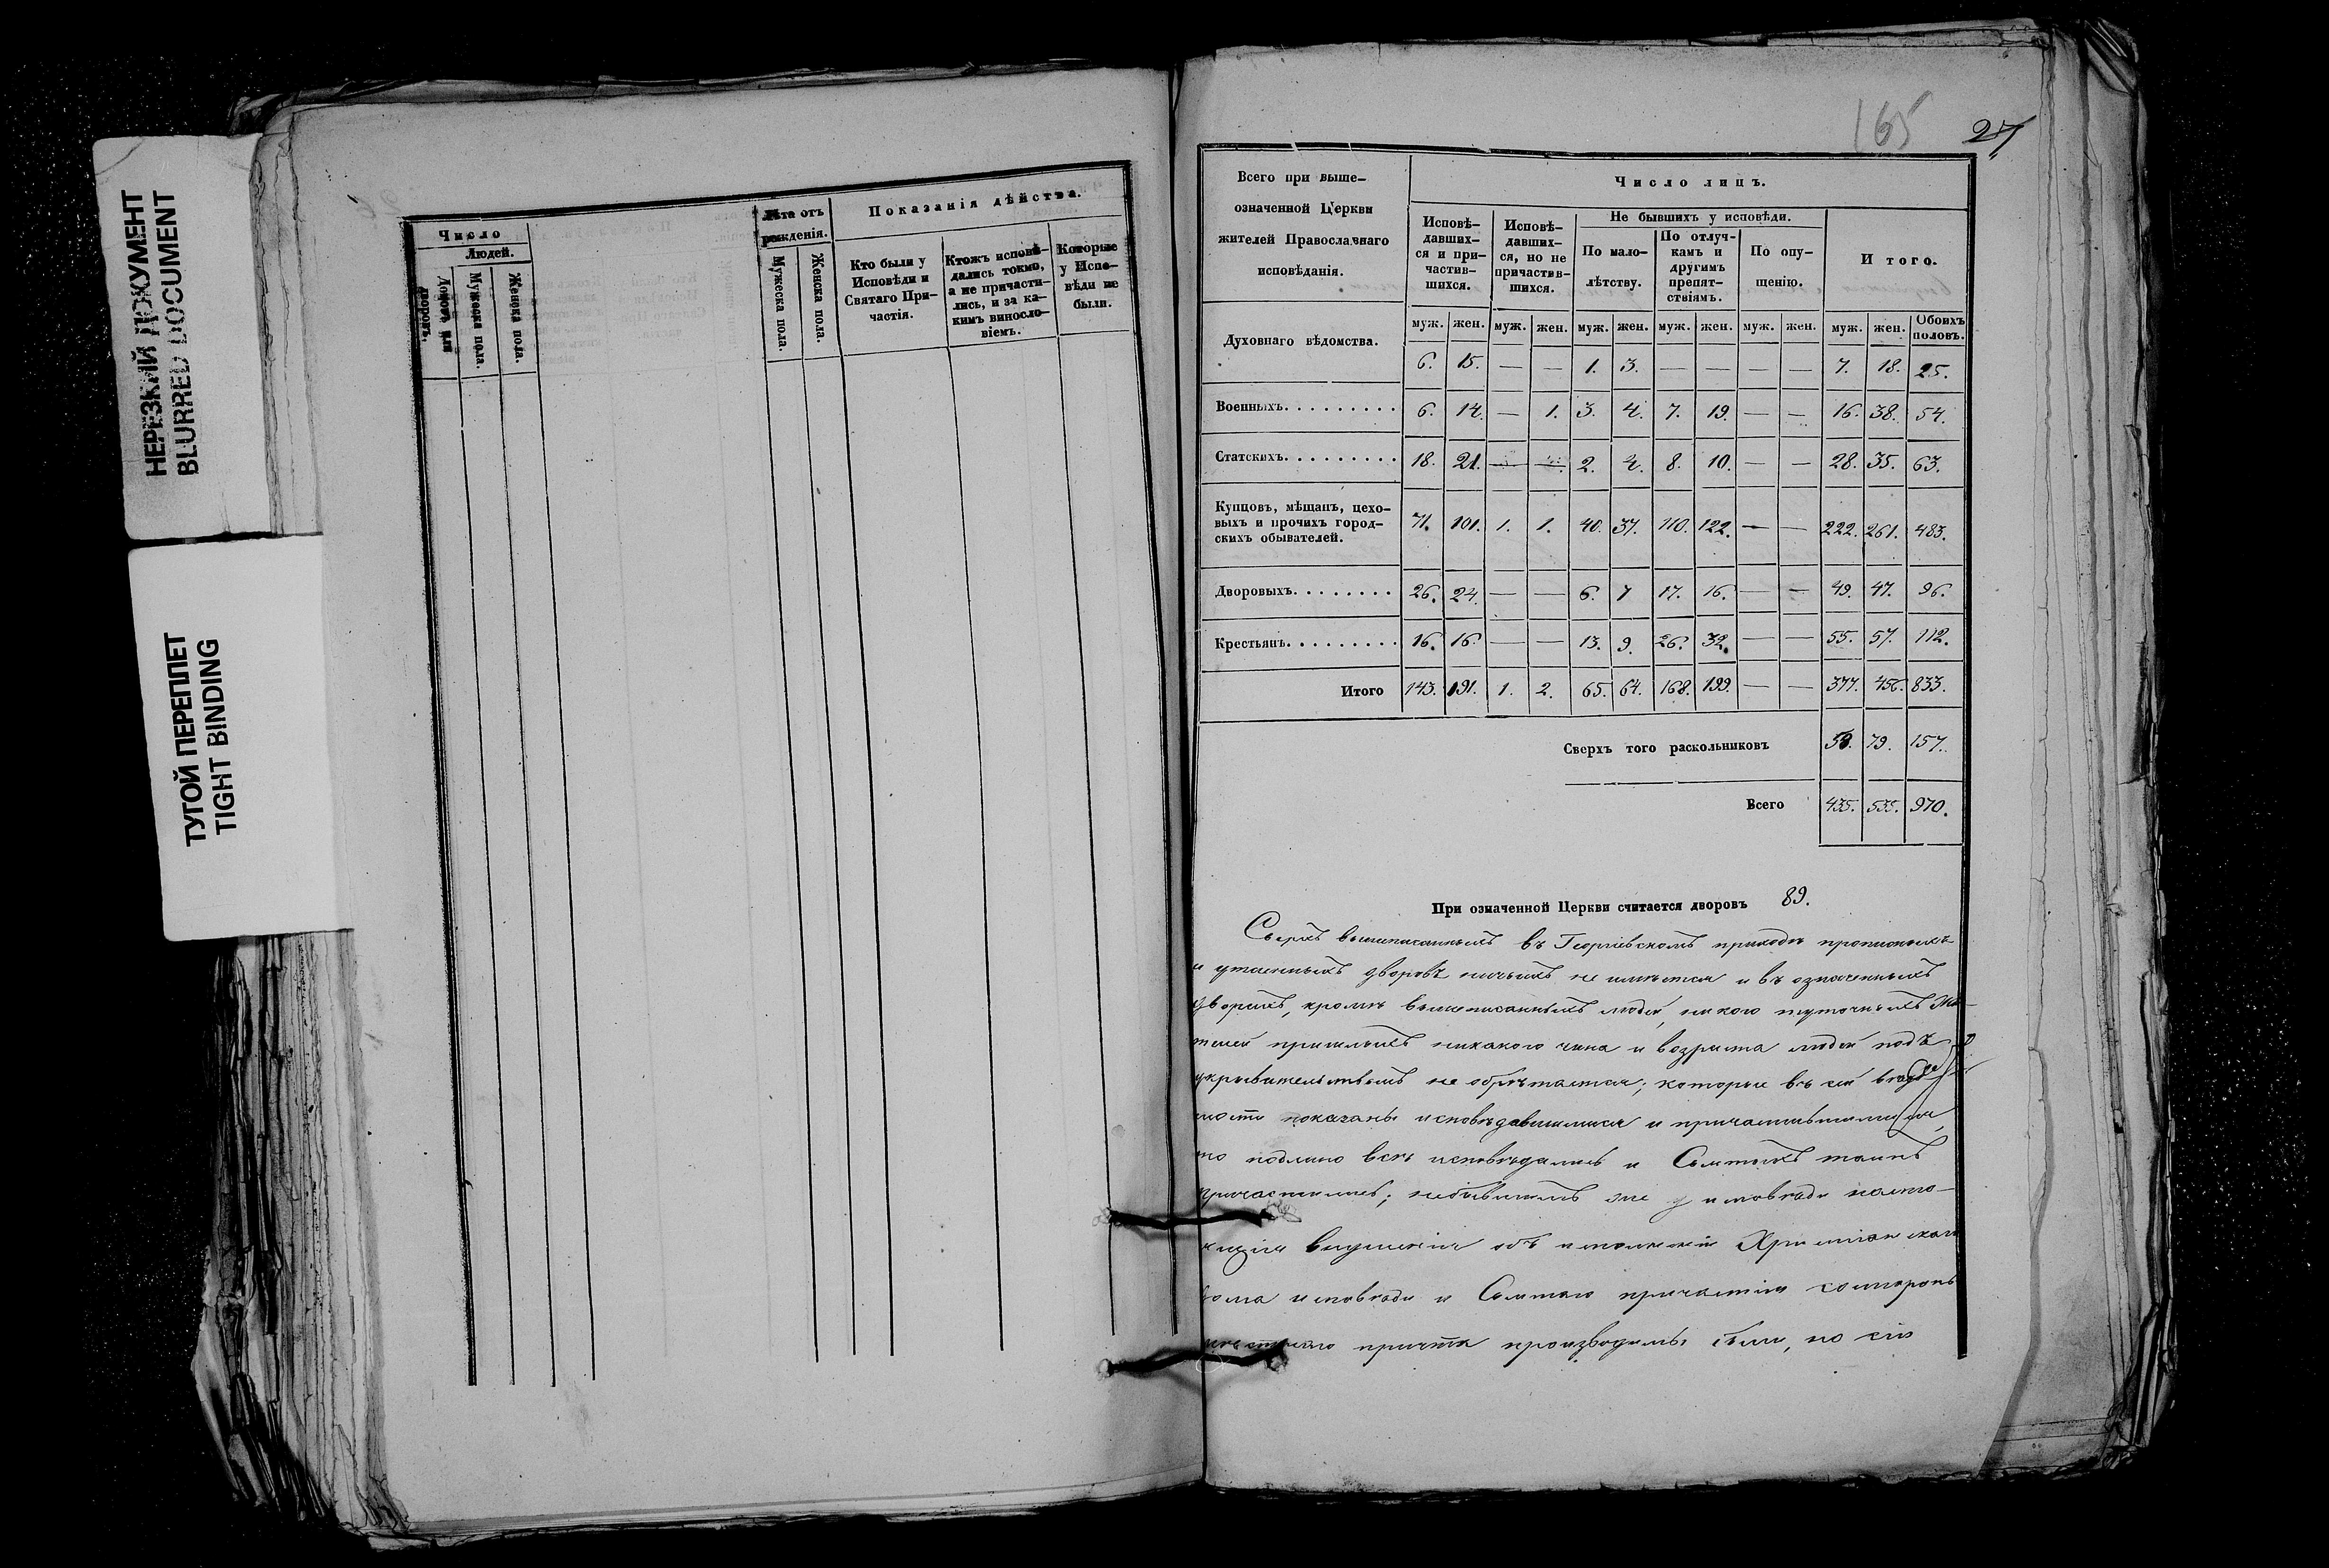 НЕРЕЗКИЙ ДОКУМЕНТ
BLURRED DOCUMENT
ТУГОЙ ПЕРЕПЛЕТ
TIGHT BINDING
Число
Людей.
дворовъ.
Мужеска пола.
Женска пола.
Лѣта отъ
рожденія.
Мужеска пола.
Женска пола.
Показанія дѣйства.
Кто были у
Исповѣди и
Святаго При-
частія.
Ктожъ исповѣ-
дались токмо,
а не причасти-
лись, и за ка-
кимъ винослo-
віемъ.
Которые
у Испо-
вѣди не
были.
165 27
Всего при выше-
означенной Церкви
жителей Православнаго
исповѣданія.
Число лицъ.
Исповѣ-
давших-
ся и при-
частив-
шихся.
Исповѣ-
давших-
ся, но не
причастив-
шихся.
Не бывшихъ у исповѣди.
По мало-
лѣтству.
По отлуч-
камъ и
другимъ
препят-
ствіямъ.
По опу-
щенію.
Итого.
муж. жен. муж. жен. муж. жен. муж. жен. муж. жен. муж. жен. Обоихъ половъ.
Духовнаго вѣдомства. 6. 15. — — 1. 3. — — — — 7. 18. 25.
Военныхъ. 6. 14. — 1. 3. 4. 7. 19. — — 16. 38. 54.
Статскихъ. 18. 21. — — 2. 4. 8. 10. — — 28. 35. 63.
Купцовъ, мѣщанъ, цехо-
выхъ и прочихъ город-
скихъ обывателей. 71. 101. 1. 1. 40. 37. 110. 122. — — 222. 261. 483.
Дворовыхъ. 26. 24. — — 6. 7 17. 16. — — 49. 47. 96.
Крестьянъ. 16. 16. — — 13. 9. 26. 32. — — 55. 57. 112.
Итого 143. 191. 1. 2. 65. 64. 168. 199. — — 377. 456. 833.
Сверхъ того раскольниковъ 58. 79. 157.
Всего 435. 535. 970.
При означенной Церкви считается дворовъ 89.
Сверхъ вышеписанныхъ въ Георгіевскомъ приходѣ прописныхъ
и утаенныхъ дворовъ ничьихъ не имѣется и въ означенныхъ
дворахъ, кромѣ вышеписанныхъ людей, никого
пришлыхъ никакого чина и возраста людей подъ
укрывательствомъ не обрѣтается; которые въ сей вѣдо
мости показаны исповѣдавшимися и причастившимися,
то подлинно всѣ исповѣдались и Святыхъ таинъ
причастились; небывшимъ же у исповѣди
внушенія объ исполненіи Христіанскаго
долга исповѣди и Святаго причастія со стороны
мѣстнаго причта производимы были, но сіи